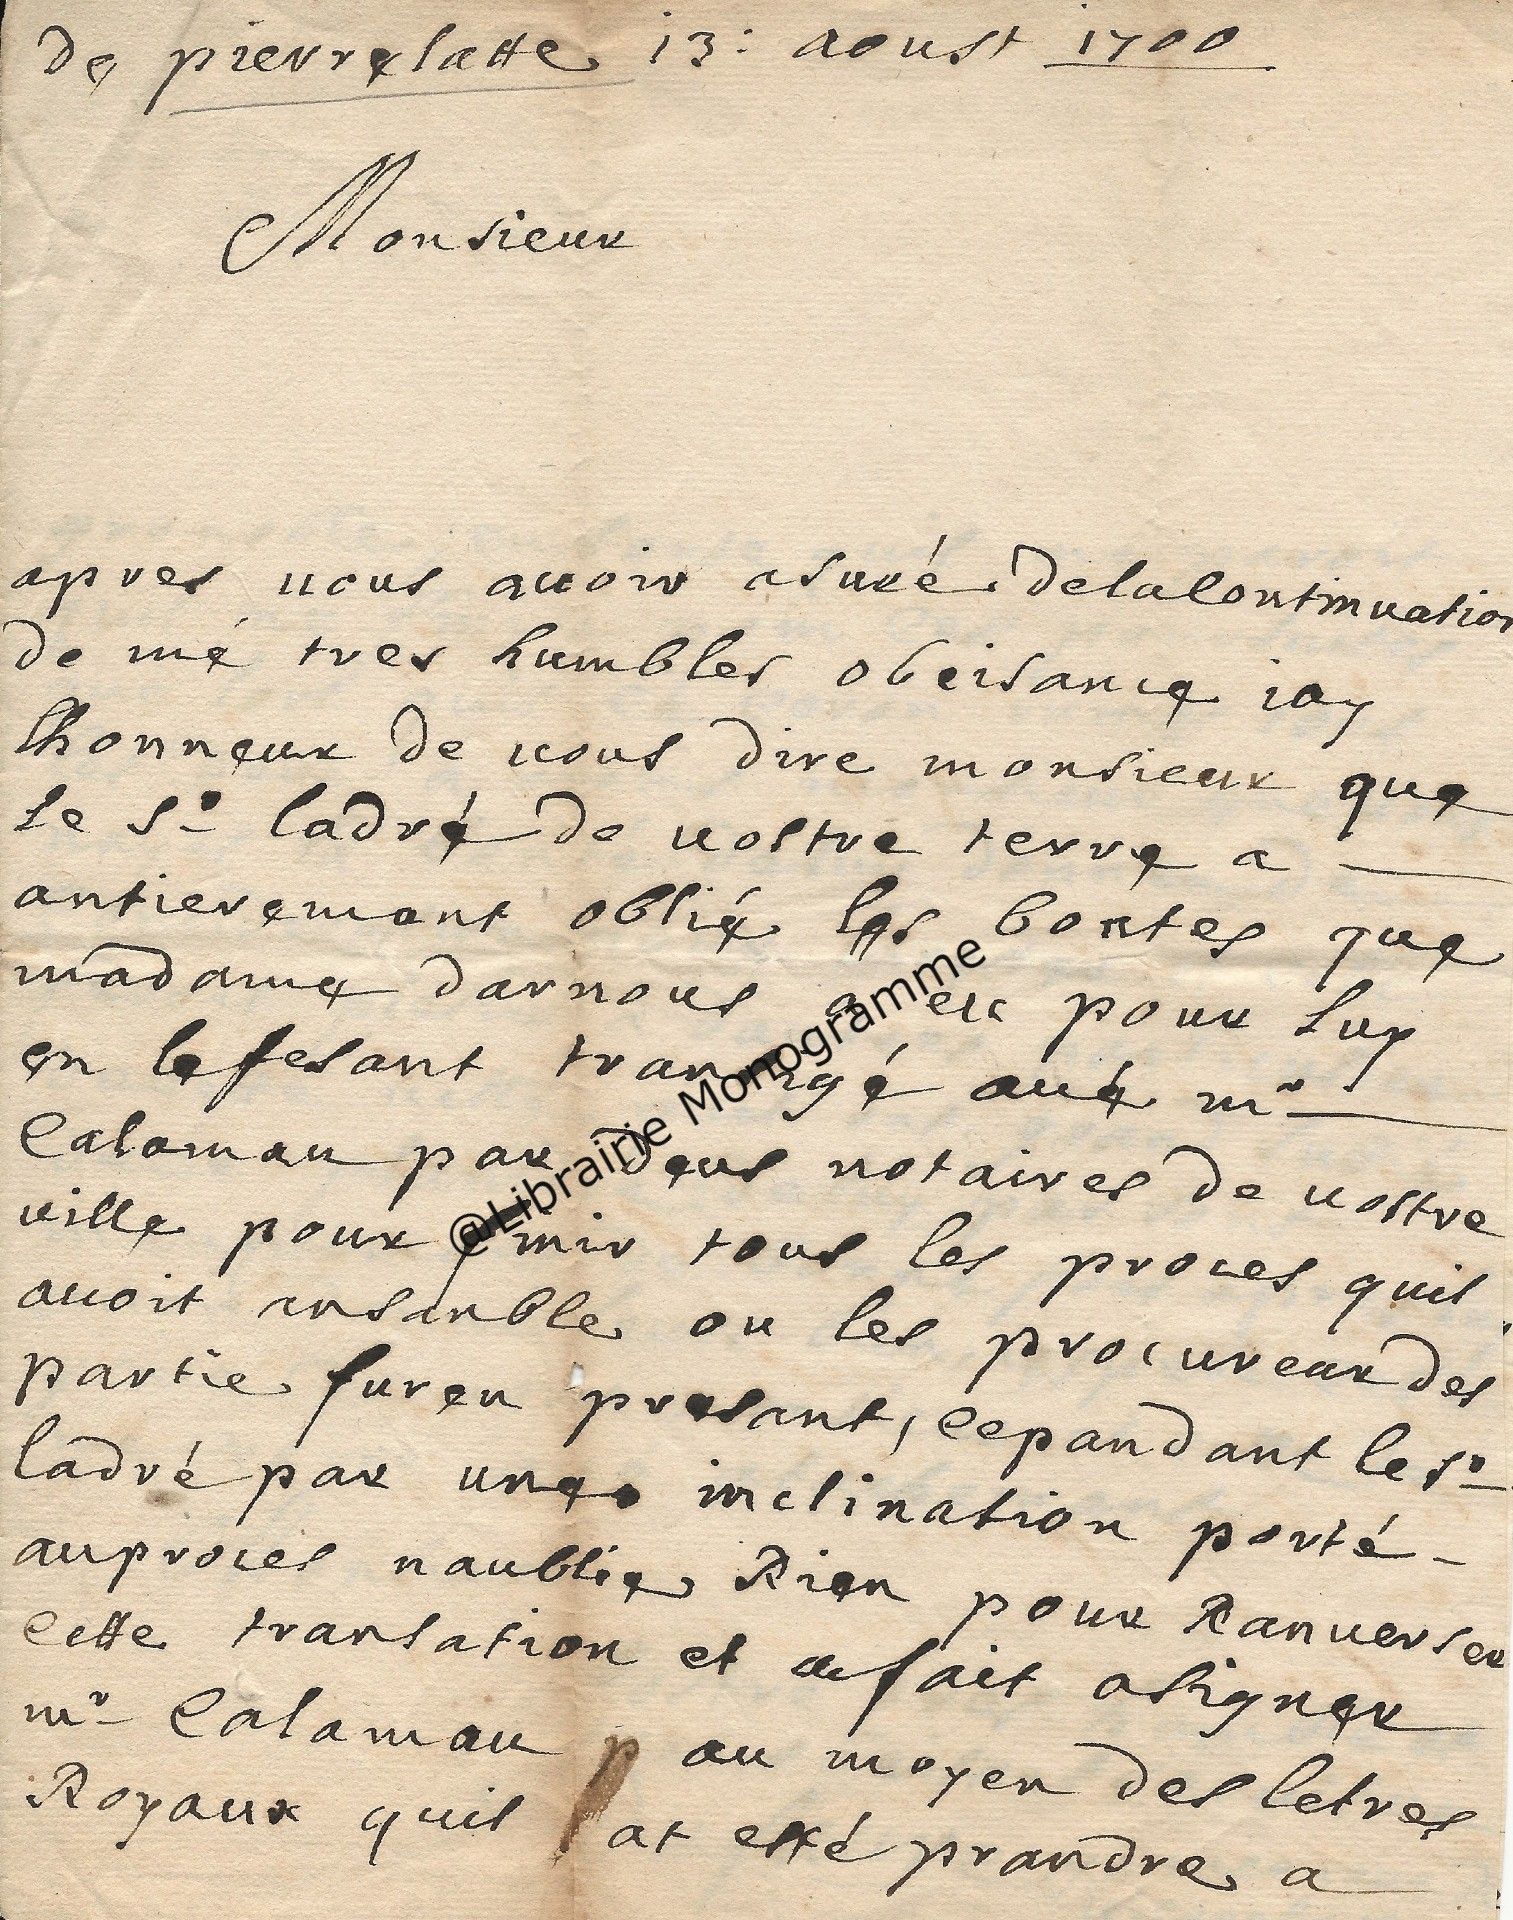 de pierrelatte 13: aoust 1700
Monsieur
apres vous avoir asuré de la Continuation
de mé tres humbles obeisance iay
lhonneur de vous dire monsieur que
Le Sr ladré de vostre terre a
antierement oblié les bontes que
madame darnous a eu pour Luy
en le fesant transigé avé mr
Calamau par deus notaires de vostre
ville pour finir tous les proces quil
avoit ansanble ou les procureur des
partie furen presant, Cepandant le Sr
ladré par une inclination porté
au proces naublie Rien pour Ranverser
Cette transation et a fait asigner
mr Calamau p au moyen des letres
Royaux quil at esté prandre a
@Librairie Monogramme